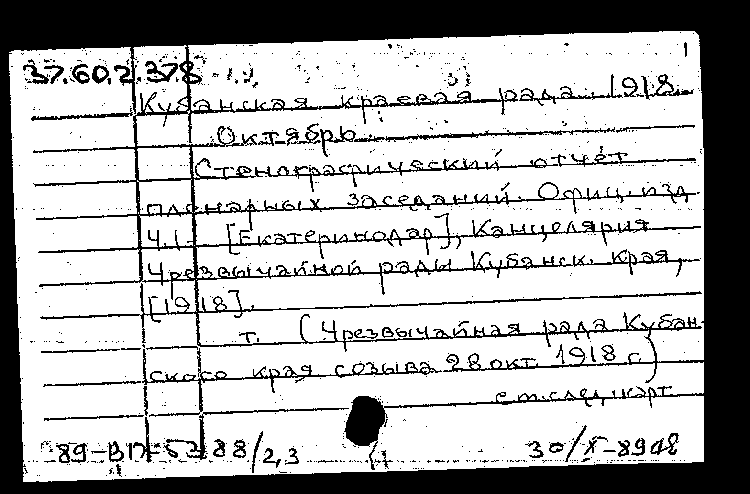 37.60.2.378
Кубанская краевая рада. 1918.
Октябрь.
Стенографический отчёт
пленарных заседаний. Офиц. изд
Ч.1- [Екатеринодар], Канцелярия
Чрезвычайной рады Кубанск. края,
[1918].
т. (Чрезвычайная рада Кубан-
ского края созыва 28 окт. 1918 г)
см. след. карт.
89-ВП-5388/2,3 30/X-89